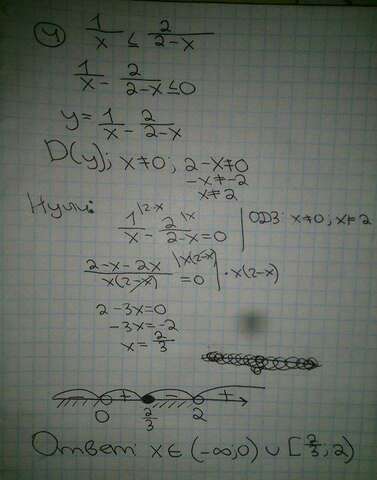 4) 1/x ≤ 2/2-x
1/x - 2/2-x ≤ 0
y = 1/x - 2/2-x
D(y); x≠0; 2-x≠0
-x≠-2
x≠2
Нули:
1/x |2-x - 2/2-x |x = 0 | ОДЗ: x≠0; x≠2
2-x-2x/x(2-x) |x(2-x) = 0 | · x(2-x)
2-3x=0
-3x=-2
x = 2/3
- + - +
0 2/3 2
Ответ: x∈(-∞;0)∪[2/3;2)